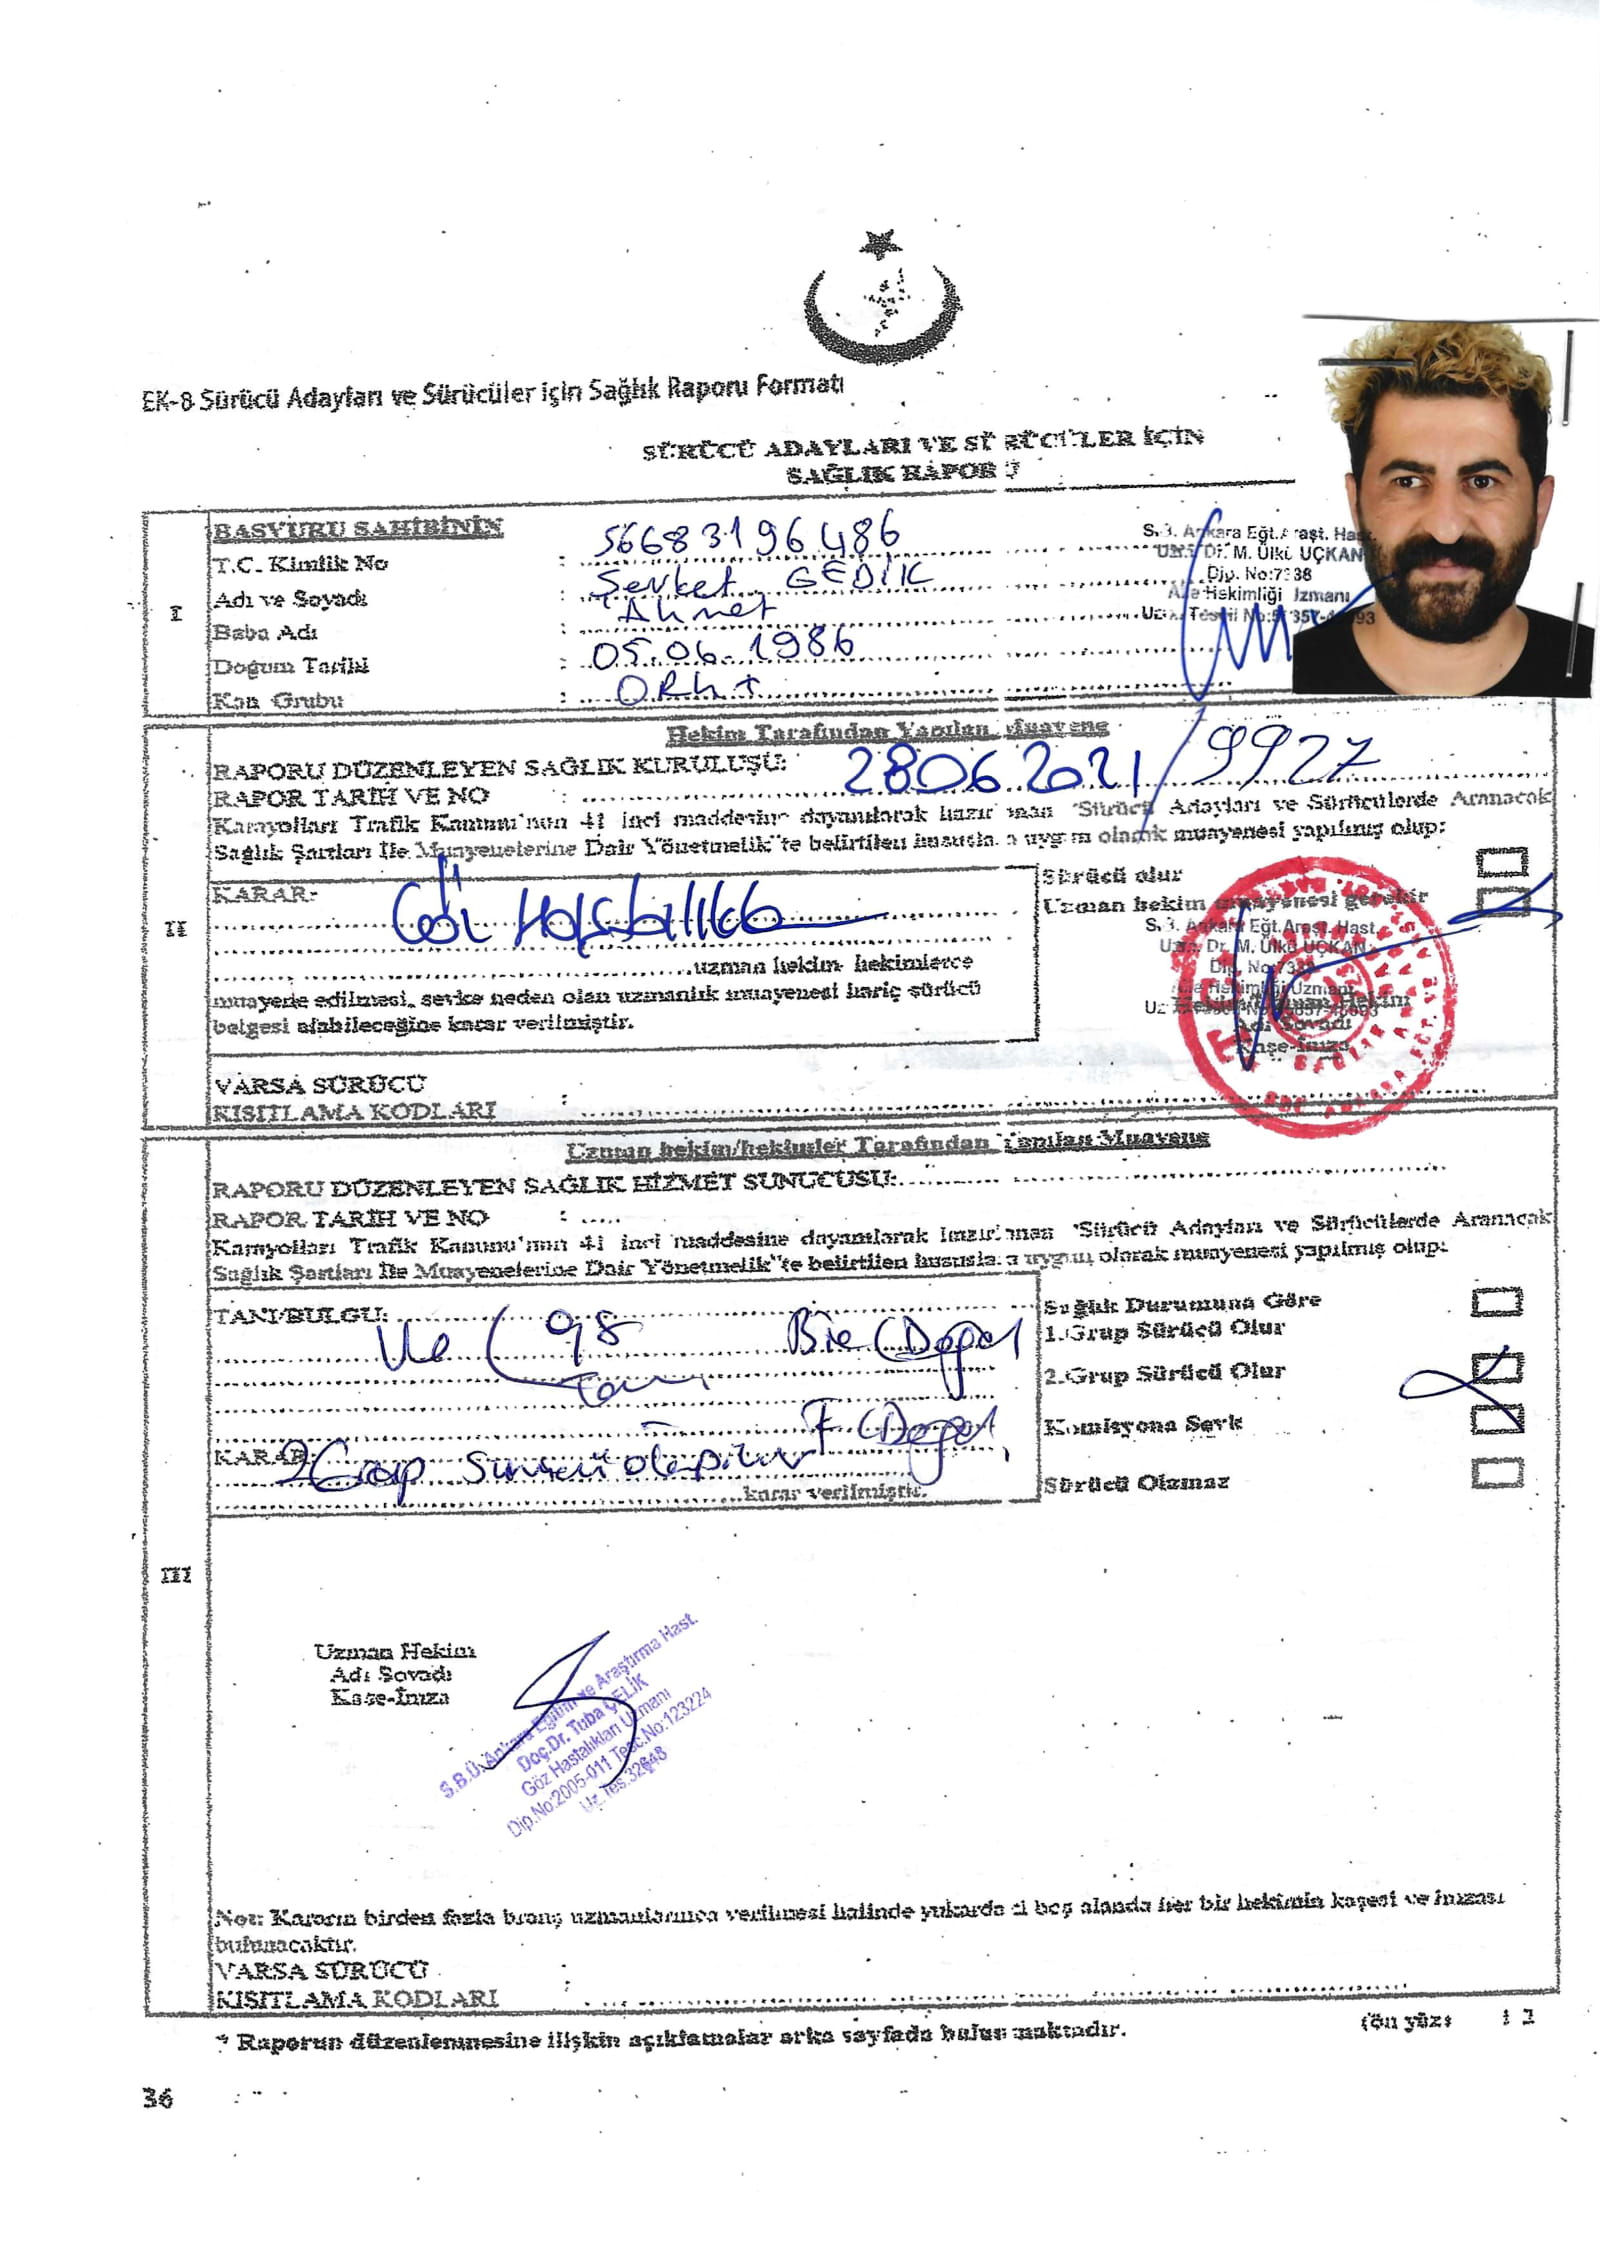 EK-8 Sürücü Adayları ve Sürücüler için Sağlık Raporu Formatı
SÜRÜCÜ ADAYLARI VE SÜRÜCÜLER İÇİN
SAĞLIK RAPORU
I
BAŞVURU SAHİBİNİN
T.C. Kimlik No : 56683196486
Adı ve Soyadı : Şevket GEDİK
Baba Adı : Ahmet
Doğum Tarihi : 05.06.1986
Kan Grubu : ORh+
Ankara Eğt. Araşt. Hast.
Dr. M. Ülkü UÇKAN
Dip. No:7338
Aile Hekimliği Uzmanı
Hekim Tarafından Yapılan Muayene
RAPORU DÜZENLEYEN SAĞLIK KURULUŞU:
RAPOR TARİH VE NO : 28062021/9927
Karayolları Trafik Kanunu'nun 41 inci maddesine dayanılarak hazırlanan "Sürücü Adayları ve Sürücülerde Aranacak
Sağlık Şartları İle Muayenelerine Dair Yönetmelik"te belirtilen hususlara uygun olarak muayenesi yapılmış olup:
II
KARAR:
Göz Hastalıkla
uzman hekim hekimlerce
muayene edilmesi, sevke neden olan uzmanlık muayenesi hariç sürücü
belgesi alabileceğine karar verilmiştir.
Sürücü olur
Uzman hekim muayenesi gerekir
Ankara Eğt. Araşt. Hast.
Dr. M. Ülkü UÇKAN
Dip. No:7338
Hekimliği Uzmanı
Adı Soyadı
Kaşe-İmza
VARSA SÜRÜCÜ
KISITLAMA KODLARI :
Uzman hekim/hekimler Tarafından Yapılan Muayene
RAPORU DÜZENLEYEN SAĞLIK HİZMET SUNUCUSU:
RAPOR TARİH VE NO :
Karayolları Trafik Kanunu'nun 41 inci maddesine dayanılarak hazırlanan "Sürücü Adayları ve Sürücülerde Aranacak
Sağlık Şartları İle Muayenelerine Dair Yönetmelik"te belirtilen hususlara uygun olarak muayenesi yapılmış olup:
TANI/BULGU:
Bio Doğal
Tam
F Doğal
KARAR:
2 Grup Sürücü olabilir
karar verilmiştir.
Sağlık Durumuna Göre
1.Grup Sürücü Olur
2.Grup Sürücü Olur
Komisyona Sevk
Sürücü Olamaz
III
Uzman Hekim
Adı Soyadı
Kaşe-İmza
S.B.Ü. Ankara Eğitim ve Araştırma Hast.
Doç.Dr. Tuba ÇELİK
Göz Hastalıkları Uzmanı
Dip.No:2005-011 Tesc.No:123224
Uz.Tes.32648
Not: Kararın birden fazla branş uzmanlarınca verilmesi halinde yukarda ki boş alanda her bir hekimin kaşesi ve imzası
bulunacaktır.
VARSA SÜRÜCÜ
KISITLAMA KODLARI :
* Raporun düzenlenmesine ilişkin açıklamalar arka sayfada bulunmaktadır.
(Ön yüz)
36